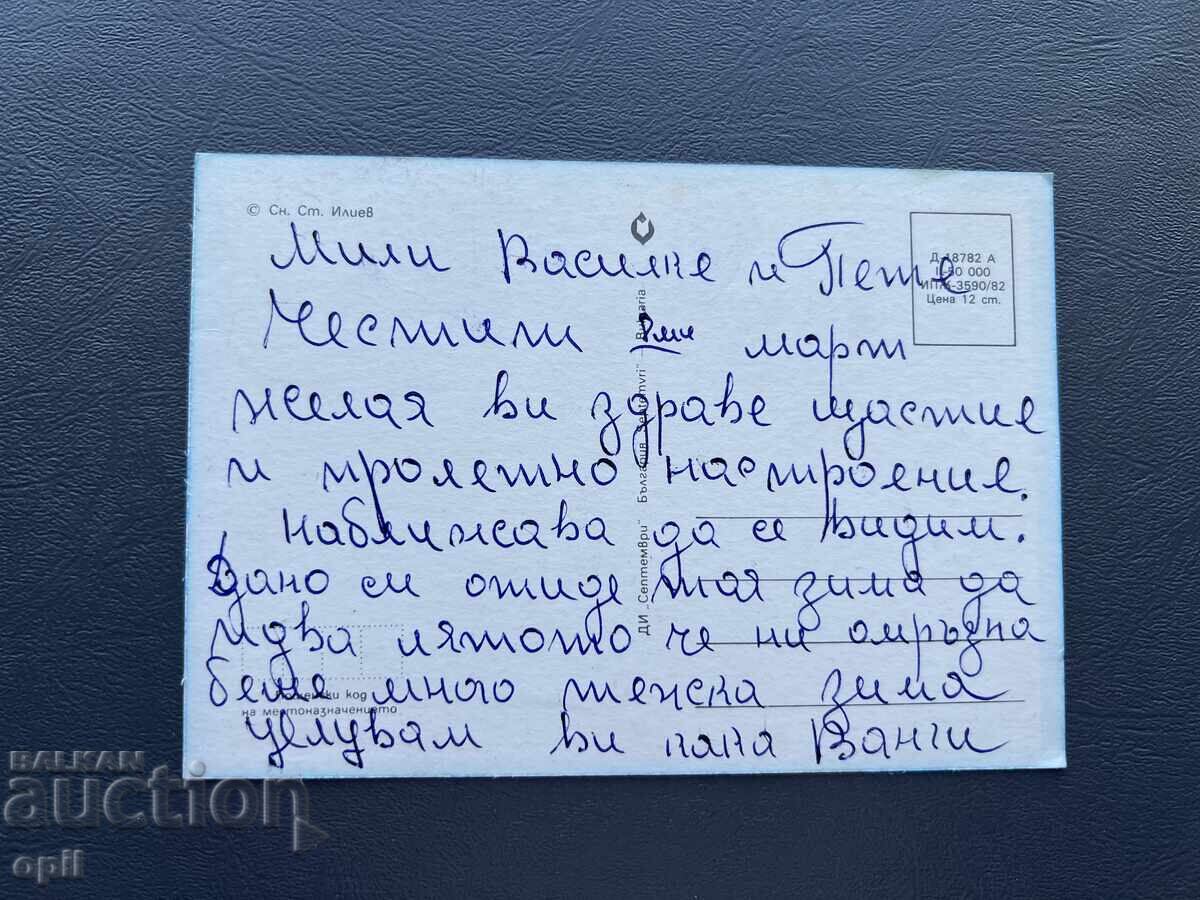 © Сн. Ст. Илиев
Мили Василке и Пете
Д-18782 А
I-50 000
ИПК-3590/82
Цена 12 ст.
Честити 8ми март
желая ви здраве щастие
и пролетно настроение.
наближава да се видим.
Дано си отиде тая зима да
идва лятото че ни омръзна
беше много тежска зима
целувам ви Ванги
ДИ „Септември" България "Septemvri" Bulgaria
Пощенски код
на местоназначението
BALKAN
auction
opll